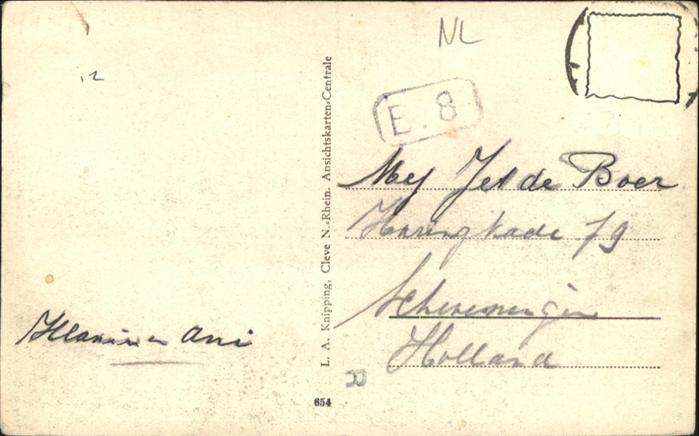 NL
E. 8
Mej Jet de Boer
Haringkade 79
Scheveningen
Holland
en Ani
L. A. Knipping, Cleve N.-Rhein. Ansichtskarten-Centrale
R
654